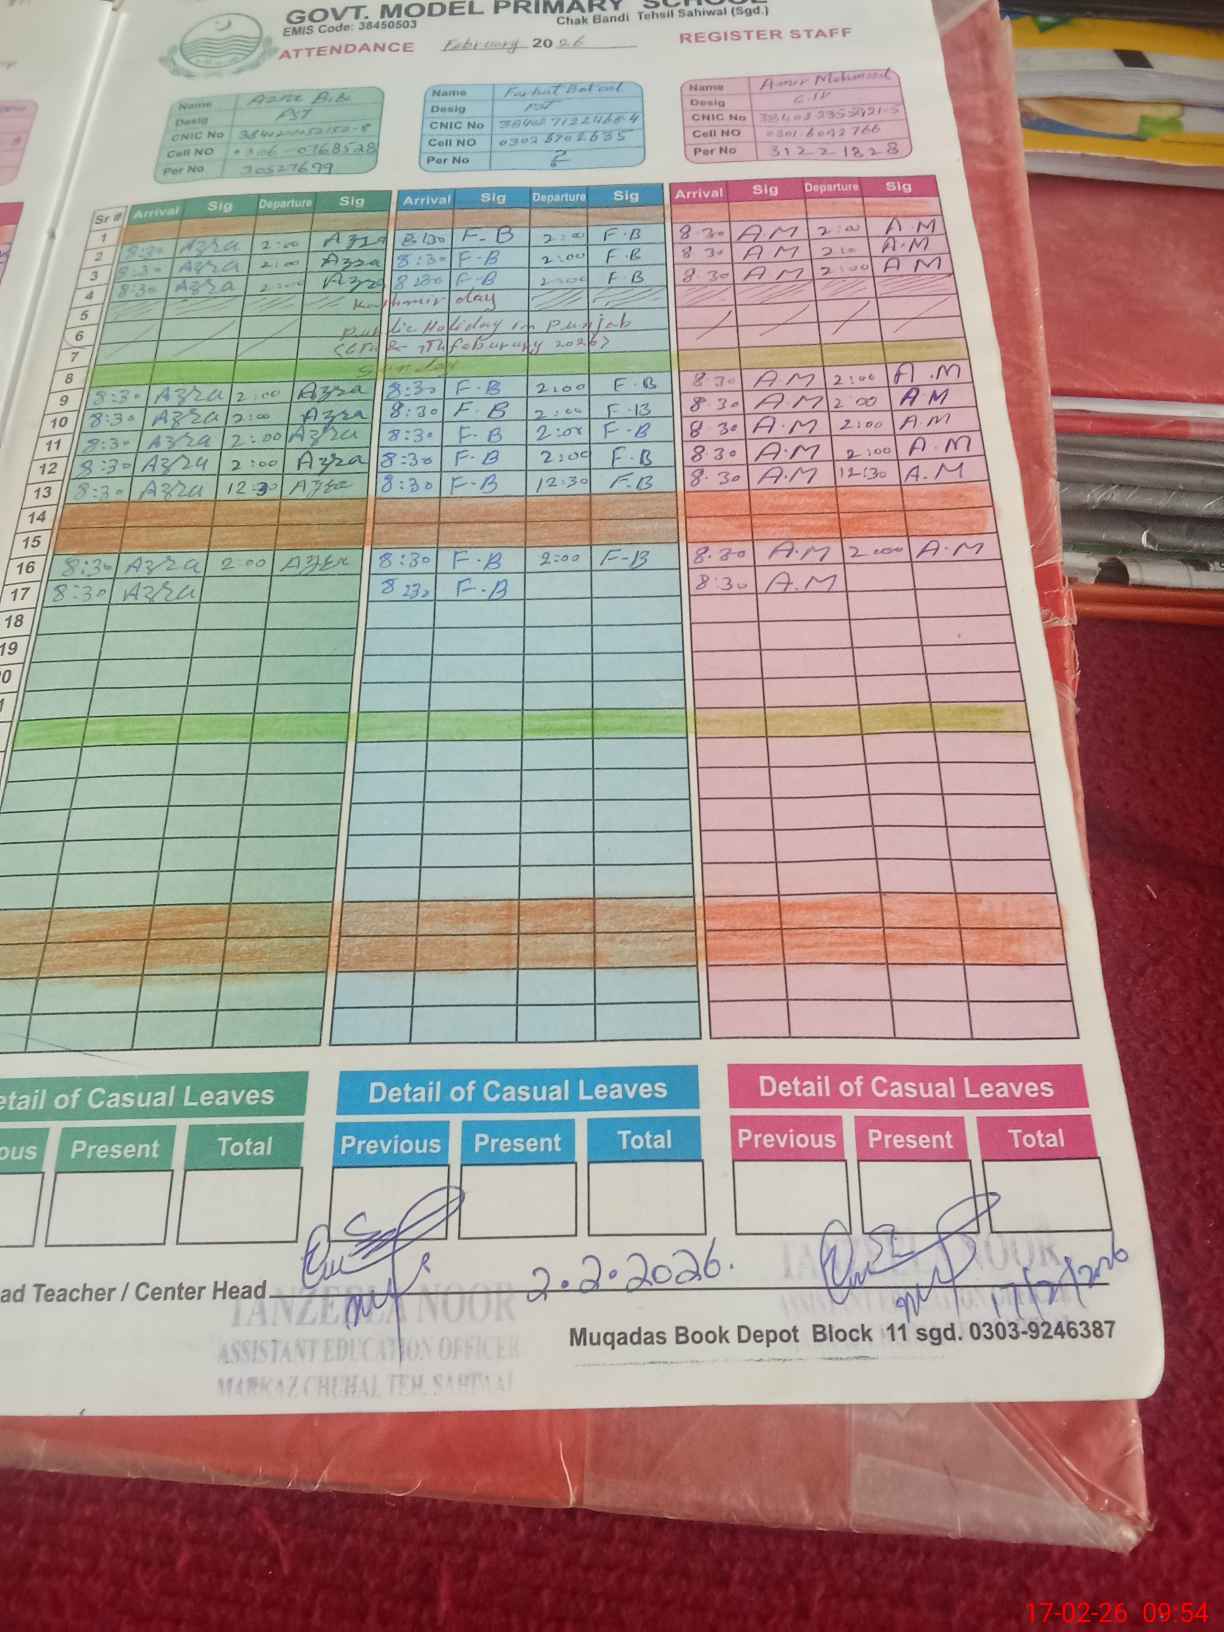 GOVT. MODEL PRIMARY SCHOOL
EMIS Code: 38450503 Chak Bandi Tehsil Sahiwal (Sgd.)
ATTENDANCE February 2026 REGISTER STAFF
Name Azra Bibi Name Farhat Batool Name Amir Mehmood
Desig PST Desig PST Desig
CNIC No CNIC No CNIC No
Cell NO 0306-0368528 Cell NO 0302 6702635 Cell NO 0301 6092766
Per No 30527699 Per No Per No 31221828
Sr # Arrival Sig Departure Sig Arrival Sig Departure Sig Arrival Sig Departure Sig
1
2 8:30 Azra 2:00 Azra 8:30 F-B 2:00 F.B 8:30 AM 2:00 A.M
3 8:30 Azra 2:00 Azra 8:30 F-B 2:00 F.B 8:30 AM 2:00 A.M
4 8:30 Azra 2:00 Azra 8:30 F-B 2:00 F.B 8:30 AM 2:00 AM
5 Kashmir day
6 Public Holiday in Punjab
7 (6th & 7th Feburury 2026)
8 Sunday
9 8:30 Azra 2:00 Azra 8:30 F-B 2:00 F.B 8:30 A.M 2:00 A.M
10 8:30 Azra 2:00 Azra 8:30 F-B 2:00 F.B 8:30 A.M 2:00 AM
11 8:30 Azra 2:00 Azra 8:30 F-B 2:00 F-B 8:30 A.M 2:00 A.M
12 8:30 Azra 2:00 Azra 8:30 F-B 2:00 F.B 8:30 A.M 2:00 A.M
13 8:30 Azra 12:30 Azra 8:30 F-B 12:30 F.B 8:30 A.M 12:30 A.M
14
15
16 8:30 Azra 2:00 Azra 8:30 F-B 2:00 F-B 8:30 A.M 2:00 A.M
17 8:30 Azra 8:30 F-B 8:30 A.M
18
19
Detail of Casual Leaves Detail of Casual Leaves
Present Total Previous Present Total Previous Present Total
Teacher / Center Head 2.2.2026. 17/2/2026
TANZEELA NOOR TANZEELA NOOR
ASSISTANT EDUCATION OFFICER
MARKAZ CHUHAL TEH. SAHIWAL
Muqadas Book Depot Block 11 sgd. 0303-9246387
17-02-26 09:54